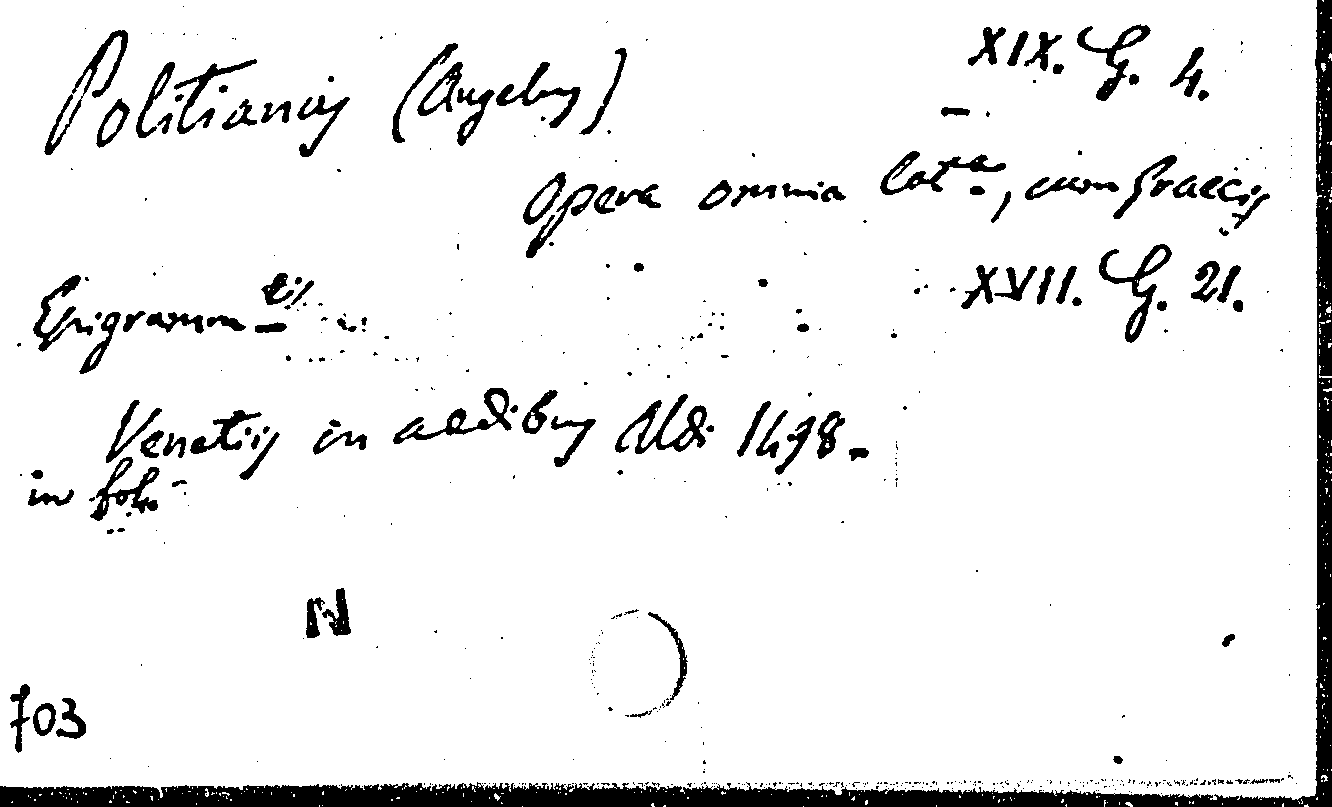 Politianus (Angelus) XIX. G. 4.
Opera omnia lat.a, cum Graecis
Epigramm-tis XVII. G. 21.
Venetiis in aedibus Aldi 1498.
in fol.
N
703